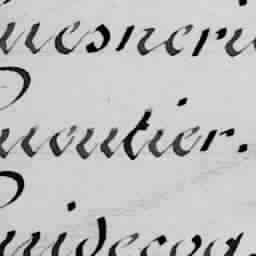 uesneri
ueutier.
uidecoq.